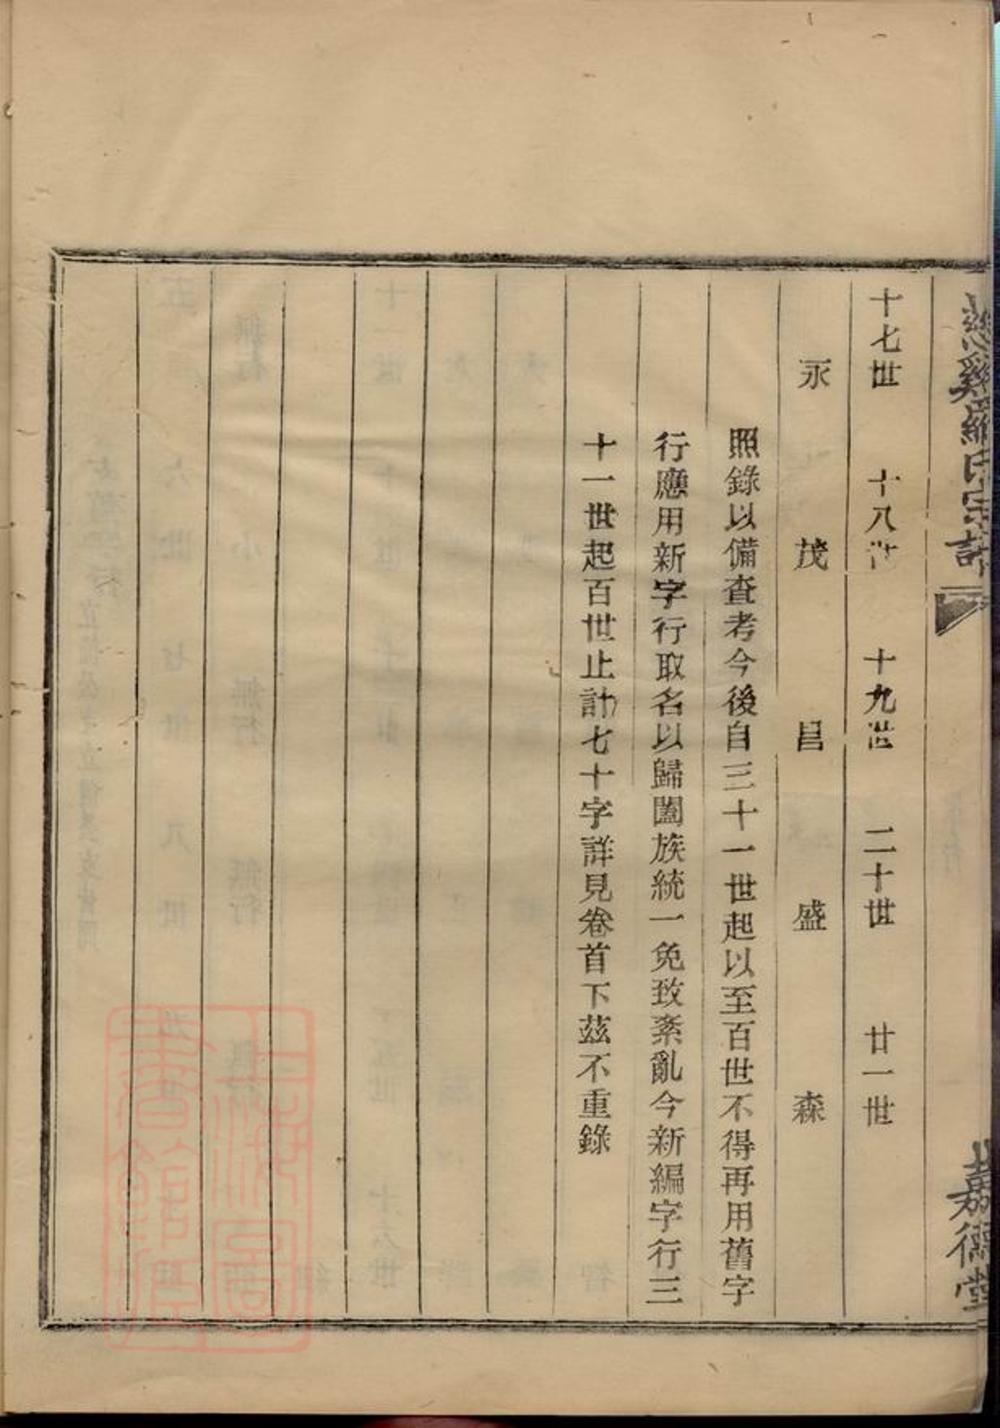 慈谿羅氏宗譜
嘉德堂
十七世 十八世 十九世 二十世 廿一世
永 茂 昌 盛 森
照錄以備查考今後自三十一世起以至百世不得再用舊字
行應用新字行取名以歸闔族統一免致紊亂今新編字行三
十一世起百世止計七十字詳見卷首下茲不重錄
上海圖書館藏